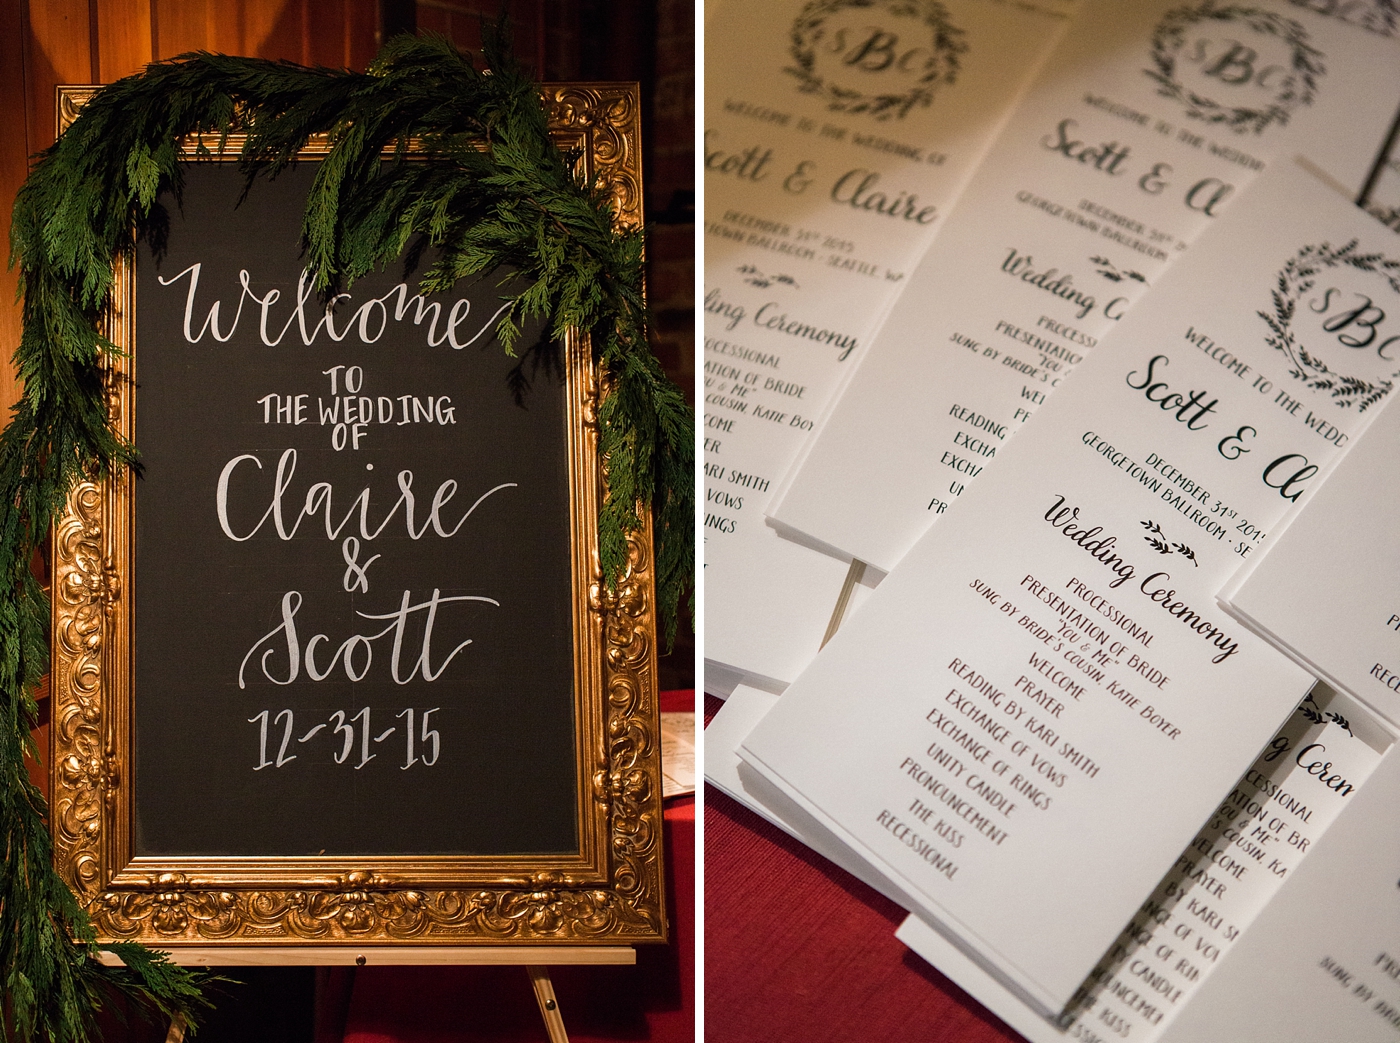 Welcome
TO
THE WEDDING
OF
Claire
&
Scott
12-31-15
S B C
WELCOME TO THE WEDDING OF
Scott & Claire
DECEMBER 31ST 2015
TOWN BALLROOM - SEATTLE, WA
ing Ceremony
OCESSIONAL
ATION OF BRIDE
OU & ME"
COUSIN, KATIE BOY
COME
YER
ARI SMITH
VOWS
INGS
S B C
WELCOME TO THE WEDDIN
Scott & Cl
DECEMBER
GEORGETOWN BALLROOM
Wedding C
PROCESS
PRESENTATIO
"YOU
SUNG BY BRIDE'S C
WEL
PR
READING
EXCHA
EXCHA
UN
PR
S B C
WELCOME TO THE WEDD
Scott & Cl
DECEMBER 31ST 2015
GEORGETOWN BALLROOM - SE
Wedding Ceremony
PROCESSIONAL
PRESENTATION OF BRIDE
"YOU & ME"
SUNG BY BRIDE'S COUSIN, KATIE BOYER
WELCOME
PRAYER
READING BY KARI SMITH
EXCHANGE OF VOWS
EXCHANGE OF RINGS
UNITY CANDLE
PRONOUNCEMENT
THE KISS
RECESSIONAL
g Cerem
CESSIONAL
ATION OF BR
U & ME"
'S COUSIN, KA
ELCOME
PRAYER
BY KARI S
NGE OF VOW
GE OF RIN
Y CANDLE
OUNCEMEN
HE KISS
ESSION
REC
SUNG BY BRI